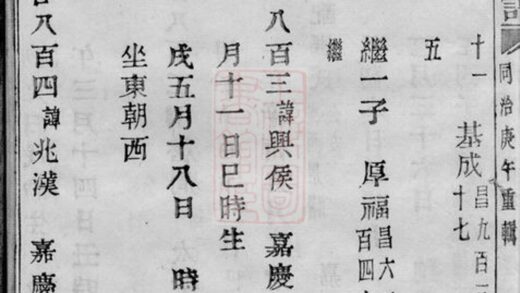 同治庚午重輯
十一 基成昌九百一
十七
五
繼一子 厚福昌六
百四
繼
八百三諱興侯 嘉慶
月十一日巳時生
戌五月十八日 時
坐東朝西
八百四諱兆漢 嘉慶